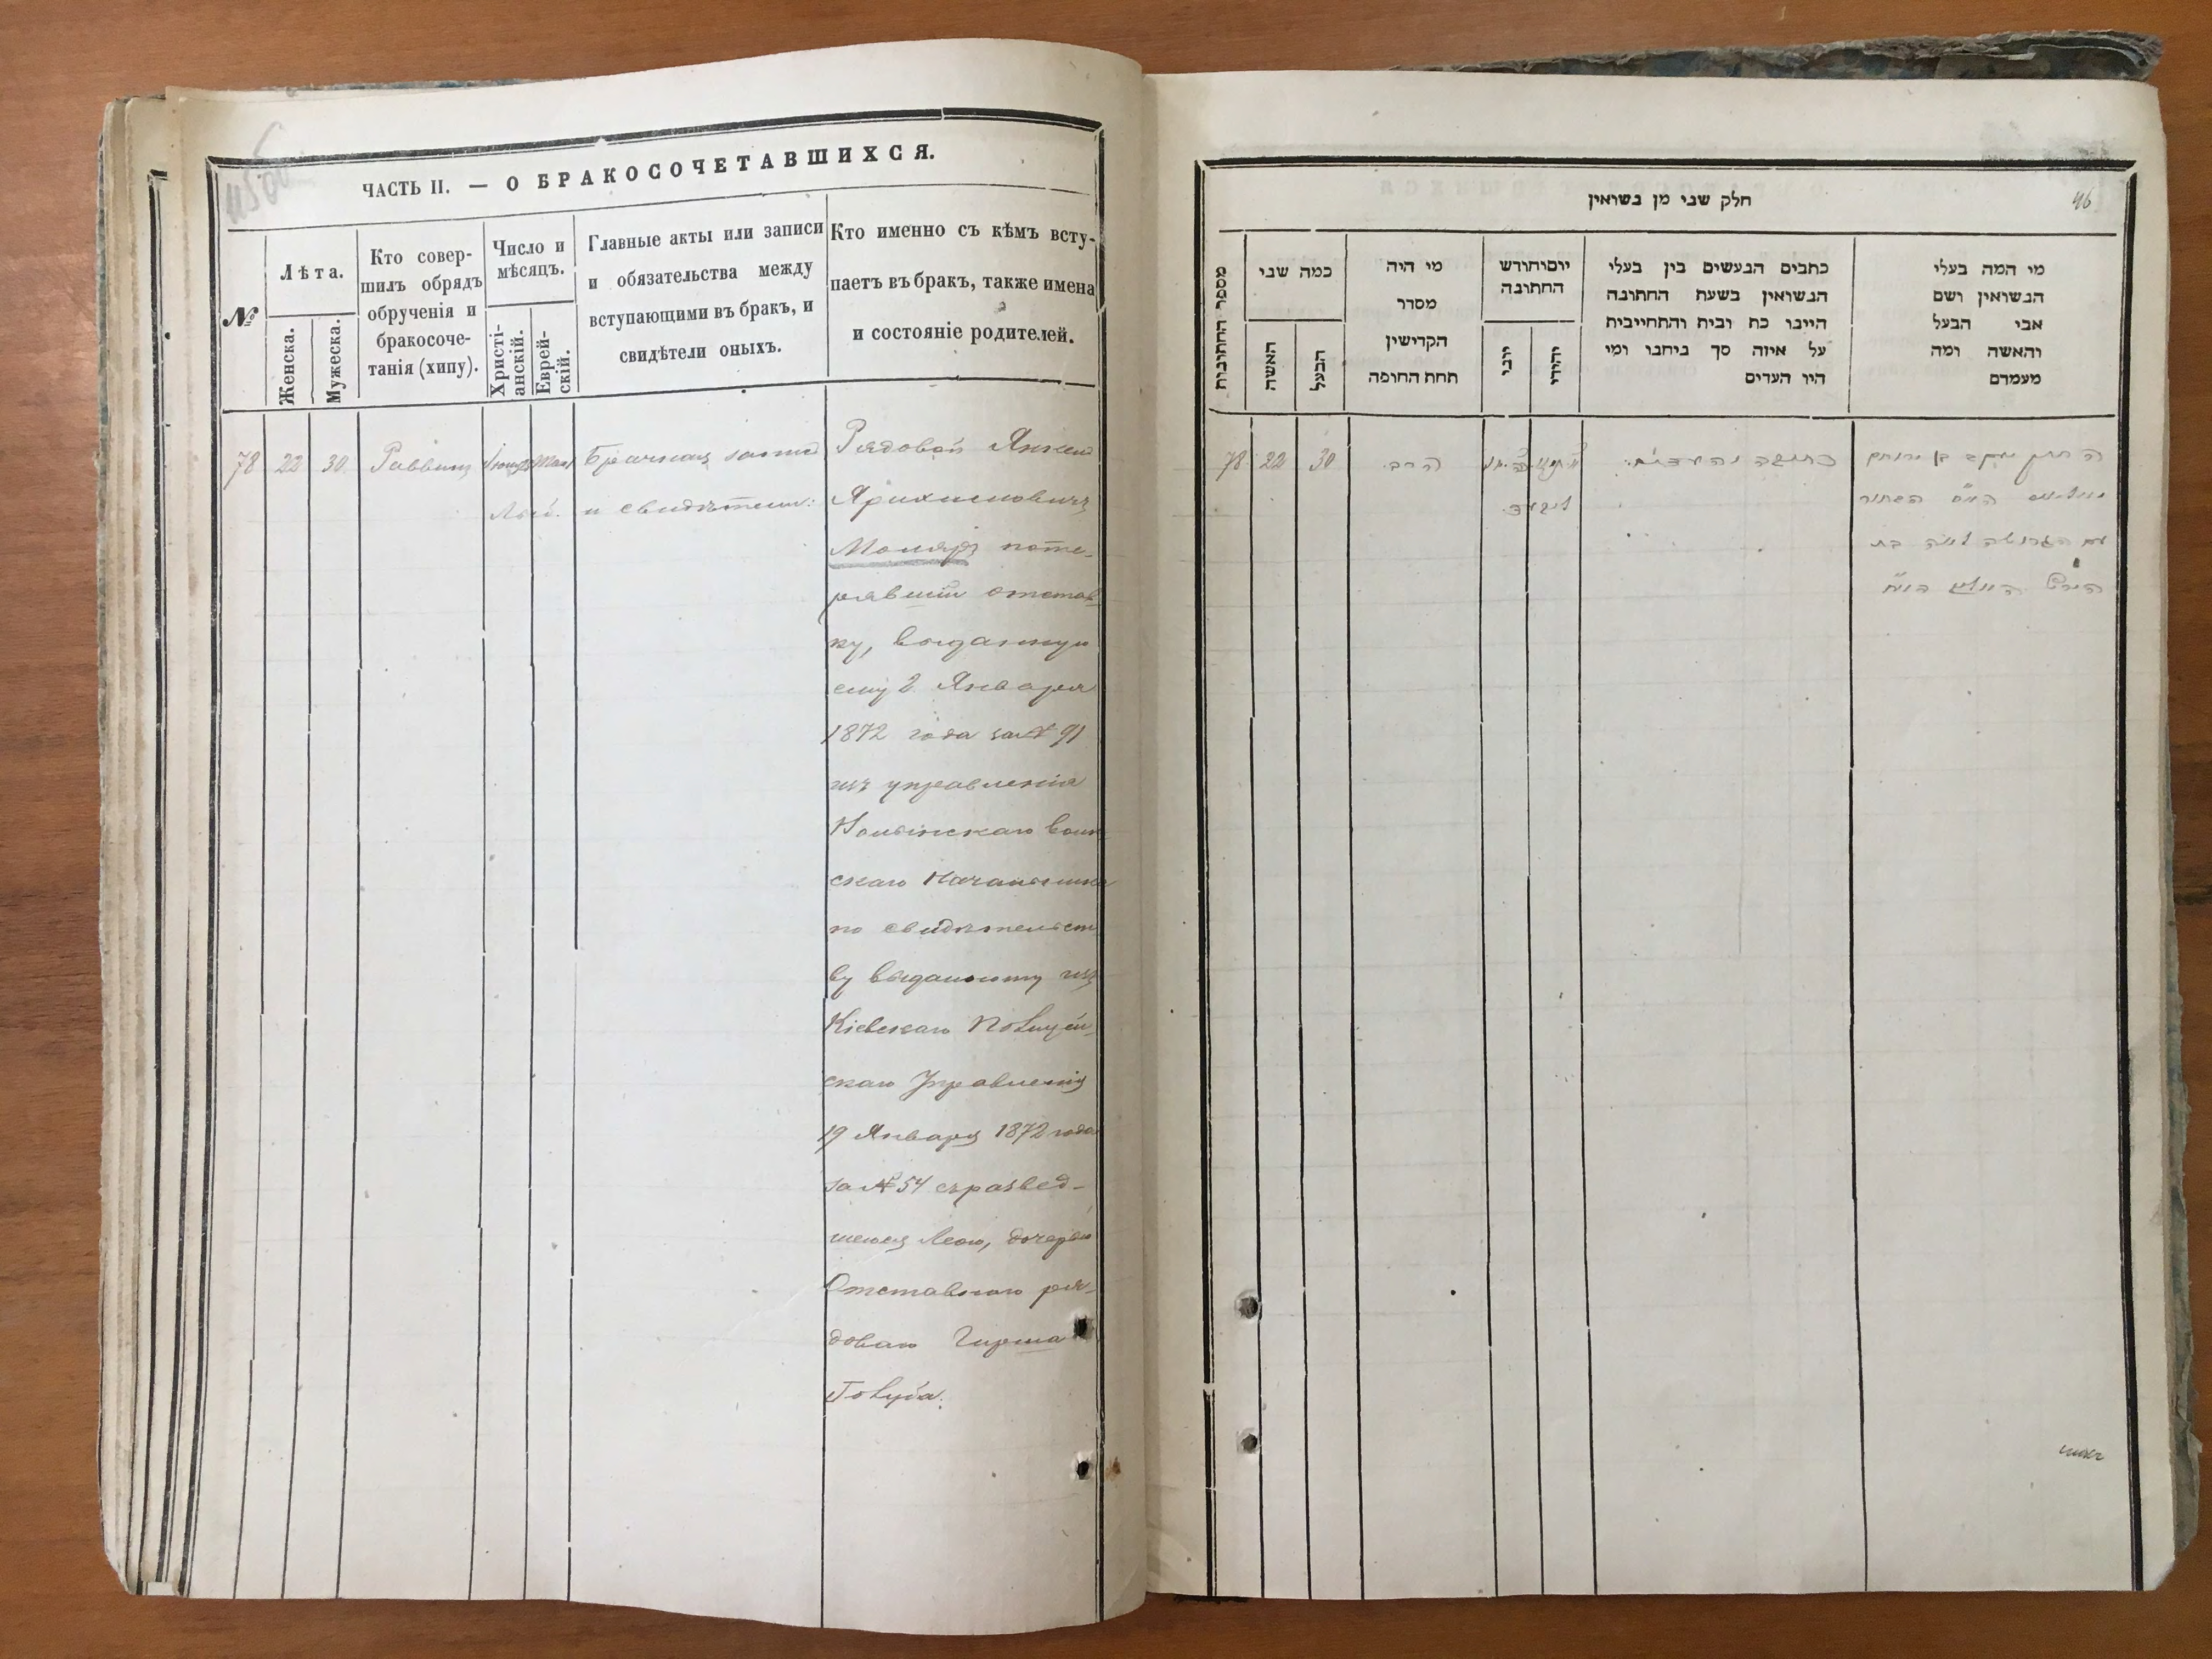 45об
ЧАСТЬ II. — О БРАКОСОЧЕТАВШИХСЯ.
№
Лѣта.
Женска.
Мужеска.
Кто совер-
шилъ обрядъ
обрученія и
бракосоче-
танія (хипу).
Число и
мѣсяцъ.
Христі-
анскій.
Еврей-
скій.
Главные акты или записи
и обязательства между
вступающими въ бракъ, и
свидѣтели оныхъ.
Кто именно съ кѣмъ всту-
паетъ въ бракъ, также имена
и состояніе родителей.
78 22 30 Раввинъ
Брачная запись
и свидѣтели:
Рядовой Янкель
Моляръ поте-
рявшій отстав-
ку, выданную
ему 2 Января
1872 года за № 91
изъ управленія
Волынскаго воин-
скаго Начальника
по свидѣтельст-
ву выданному изъ
Кіевскаго Полицей-
скаго Управленія
19 Января 1872 года
за № 54 съ развед-
шеюся Леею, дочерью
Отставного ря-
доваго Гирша
Голуба.
46
חלק שני מן נשואין
מספר החתונות
כמה שני
האשה
הבעל
מי היה
מסדר
הקדישין
תחת החופה
יום וחודש
החתונה
יוני
יהודי
כתבים הנעשים בין בעלי
הנשואין בשעת החתונה
היינו כת ובית והתחייבית
על איזה סך ניתנו ומי
היו העדים
מי המה בעלי
הנשואין ושם
אבי הבעל
והאשה ומה
מעמדם
78 22 30 הרב
כתובה והעדים
עם הגרושה לאה בת